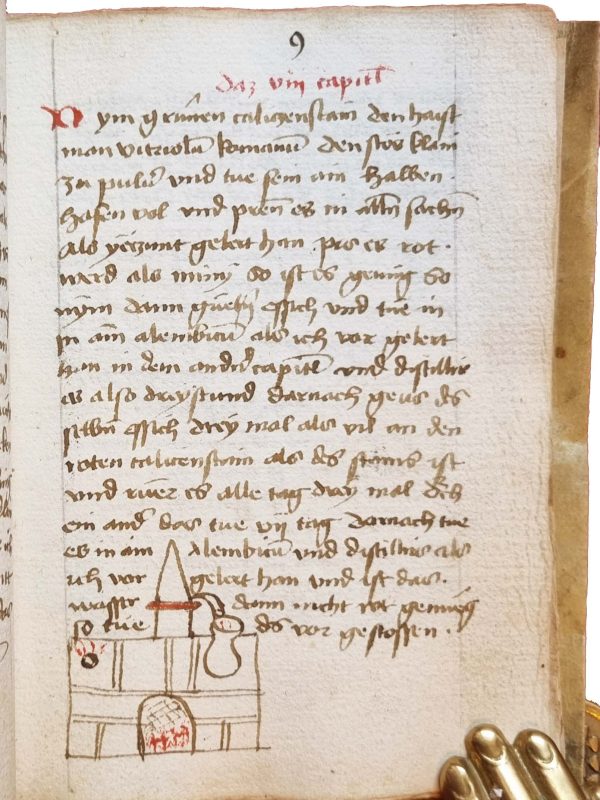 9
daz viii capitl
Nym grunen calicenstain den haist
man vitriolu romanu den stos klain
zu pulu vnd tue sein ain halben
hafen vol vnd pren es in alln sachn
als yeczunt gelert han pis es rot
werd als miny so ist es genug so
nym dann guetn essich vnd tue in
in ain alembicu als ich vor gelert
han in dem andn capitl vnd distillir
es also dreystund darnach geus des
selbn essich drey mal als vil an den
roten calicenstain als des stains ist
vnd ruer es alle tag drey mal
ein and das tue vij tag darnach tue
es in ain Alembicu vnd distillir als
ich vor gelert han vnd ist das
wasser dann nicht rot genueg
so tue des vor gestossen